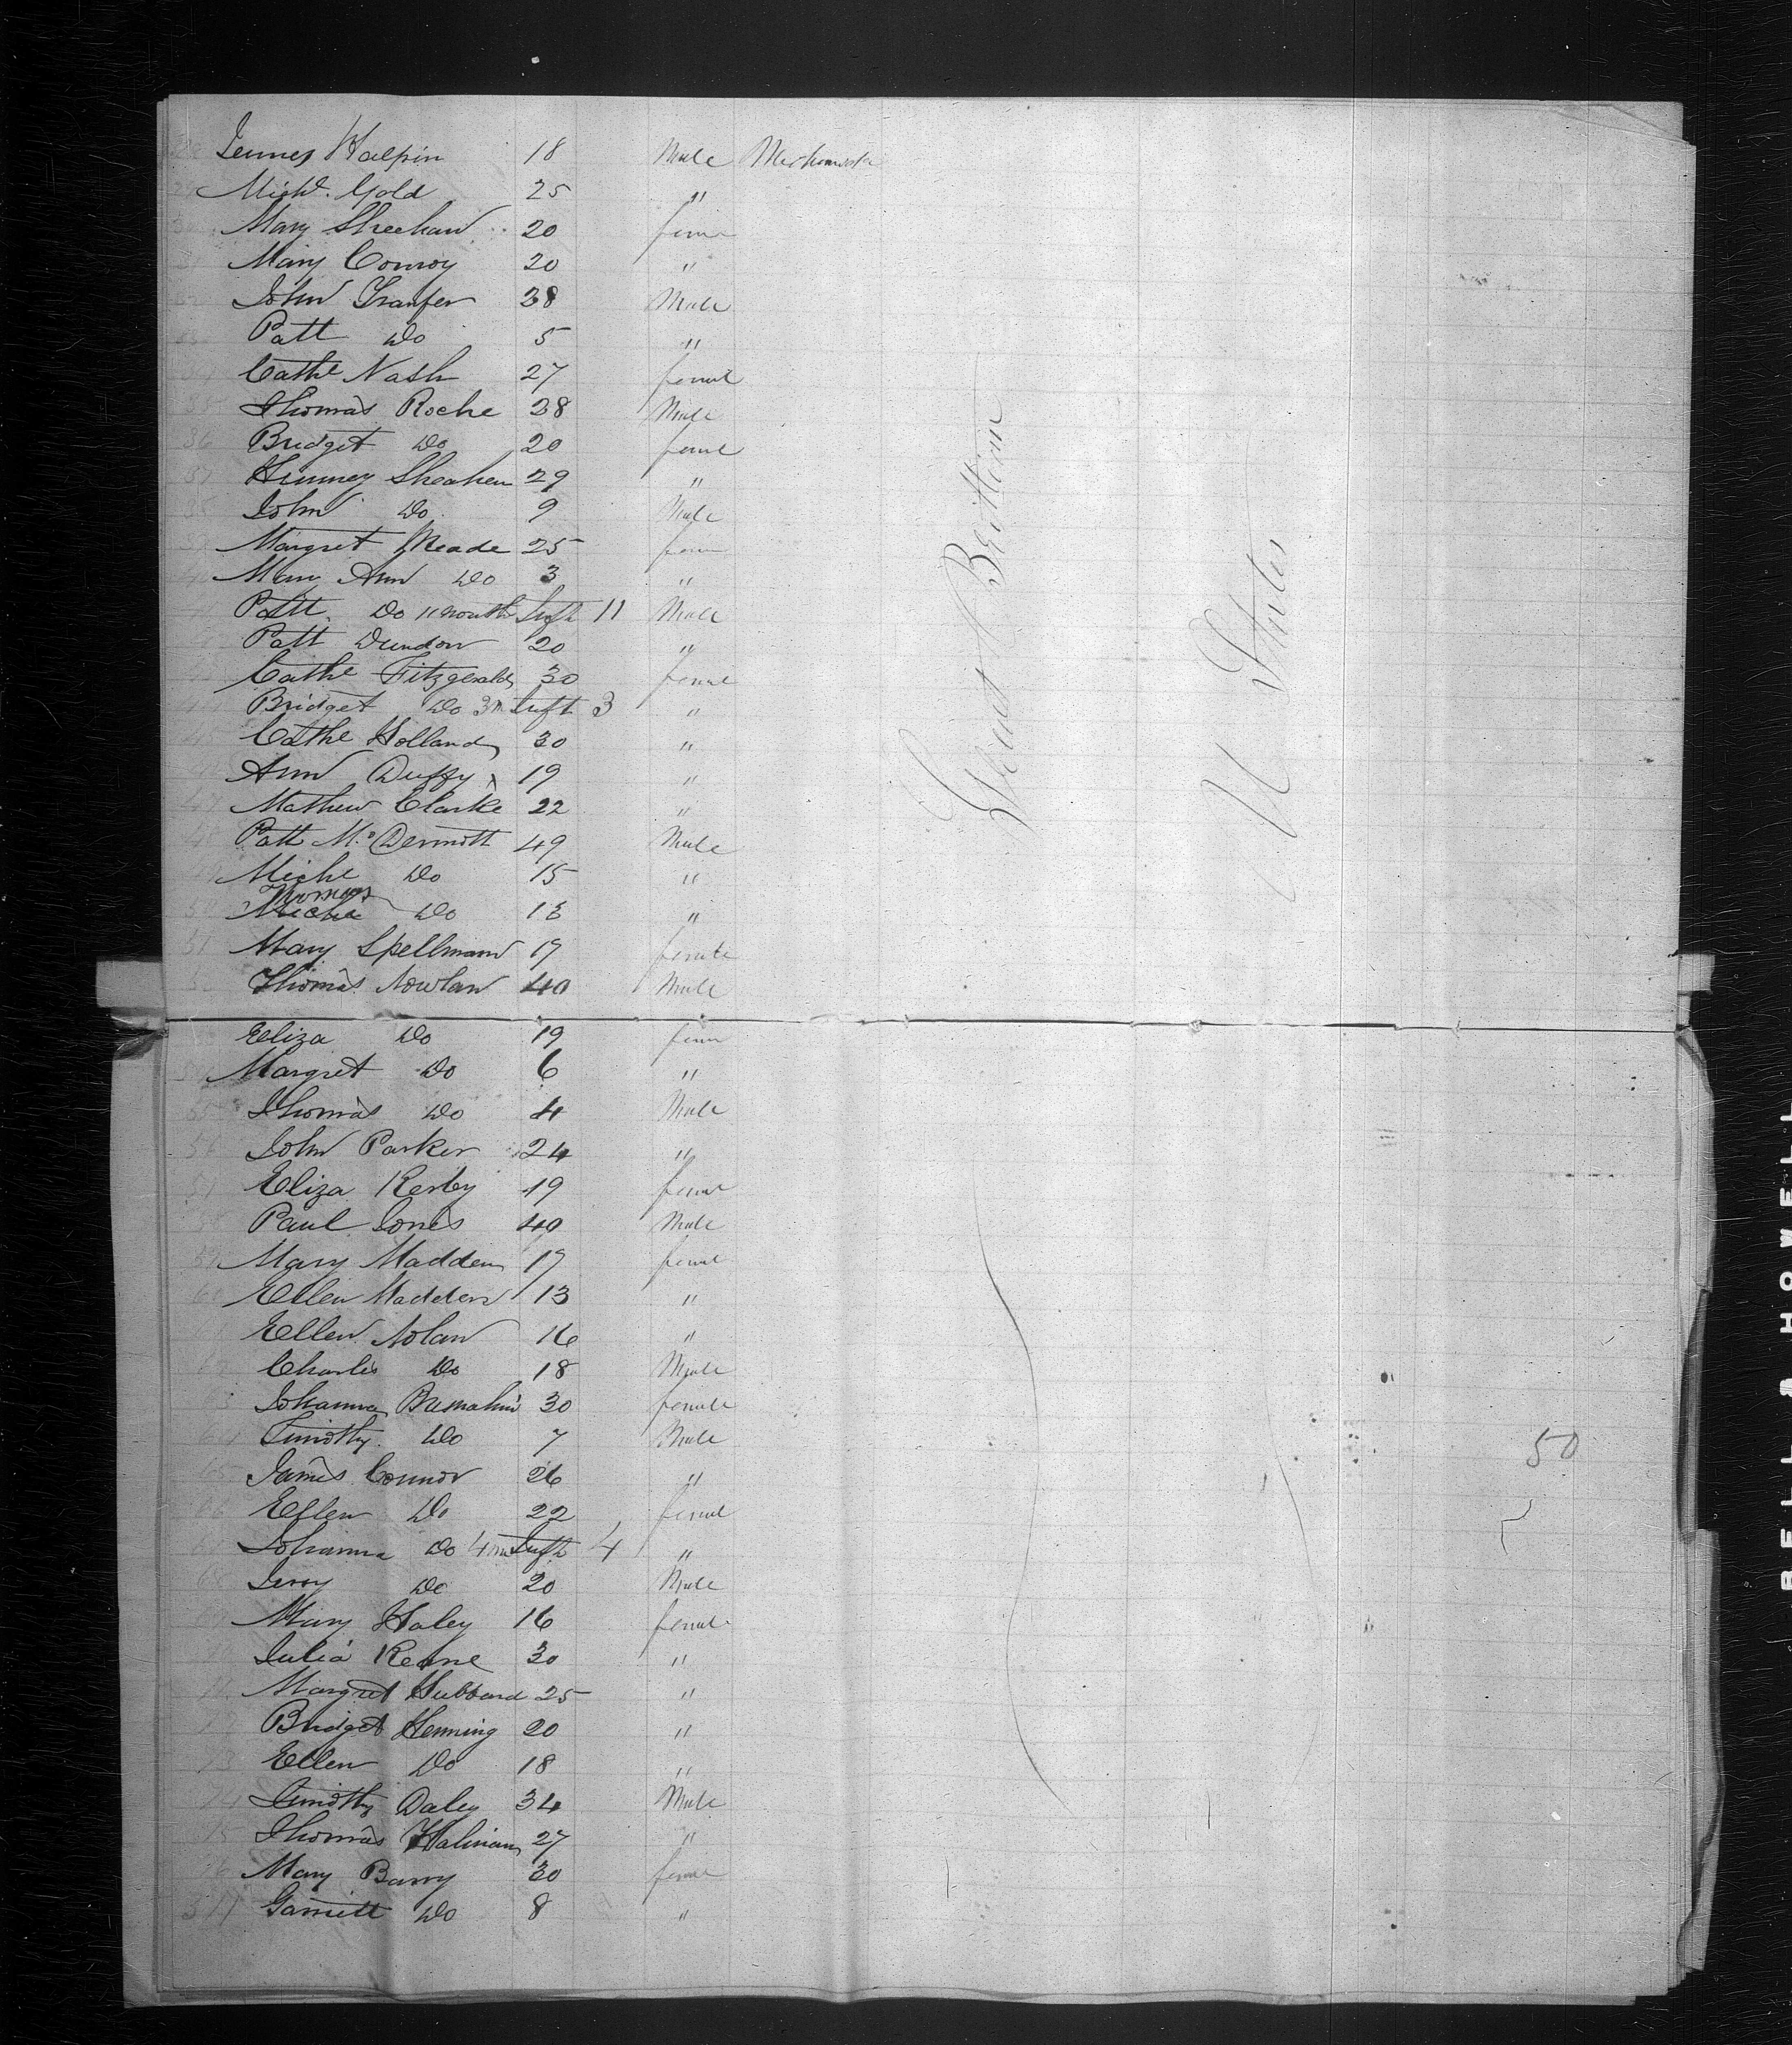 James Halpin 18 Male
Michl. Gold 25 "
Mary Sheehan 20 fem
Mary Conroy 20 "
John 38 Male
Patt Do 5 "
Cathe Nash 27 femal
Thomas Roche 38 Male
36 Bridget Do 20 femal
37 Sheahen 29 "
38 John Do 9 Male
Margret Meade 25 fem
Mary Ann Do 3 "
Patt Do 11 month Inft 11 Male
Patt Dundon 20 "
Cathe Fitzgerald 30 femal
Bridget Do 3 m Inft 3 "
Cathe Holland 30 "
Ann Duffy 19 "
47 Mathew Clarke 22 "
48 Patt Mc Dermott 49 Male
Michl Do 15 "
Thomas
Michl Do 13 "
51 Mary Spellman 17 female
Thomas Nowlan 40 Male
Eliza Do 19 fem
Margret Do 6 "
55 Thomas Do 4 Male
56 John Parker 24 "
57 Eliza Kerby 19 femal
Paul Jones 40 Male
Mary Madden 17 femal
Ellen Madden 13 "
Ellen Nolan 16 "
Charles Do 18 Male
Johanna 30 female
64 Timothy Do 7 Male
65 James Connor 26 "
66 Ellen Do 22 femal
Johanna Do 4 m Inft 4 "
68 Jerry Do 20 Male
Mary Haley 16 femal
Julia Keane 30 "
71 Margret Hubbard 25 "
72 Bridget Henning 20 "
73 Ellen Do 18 "
74 Timothy Daley 34 Male
75 Thomas Halinan 27 "
76 Mary Barry 30 femal
377 Garrett Do 8 "
Great Brittain
U States
50
BELL & HOWELL